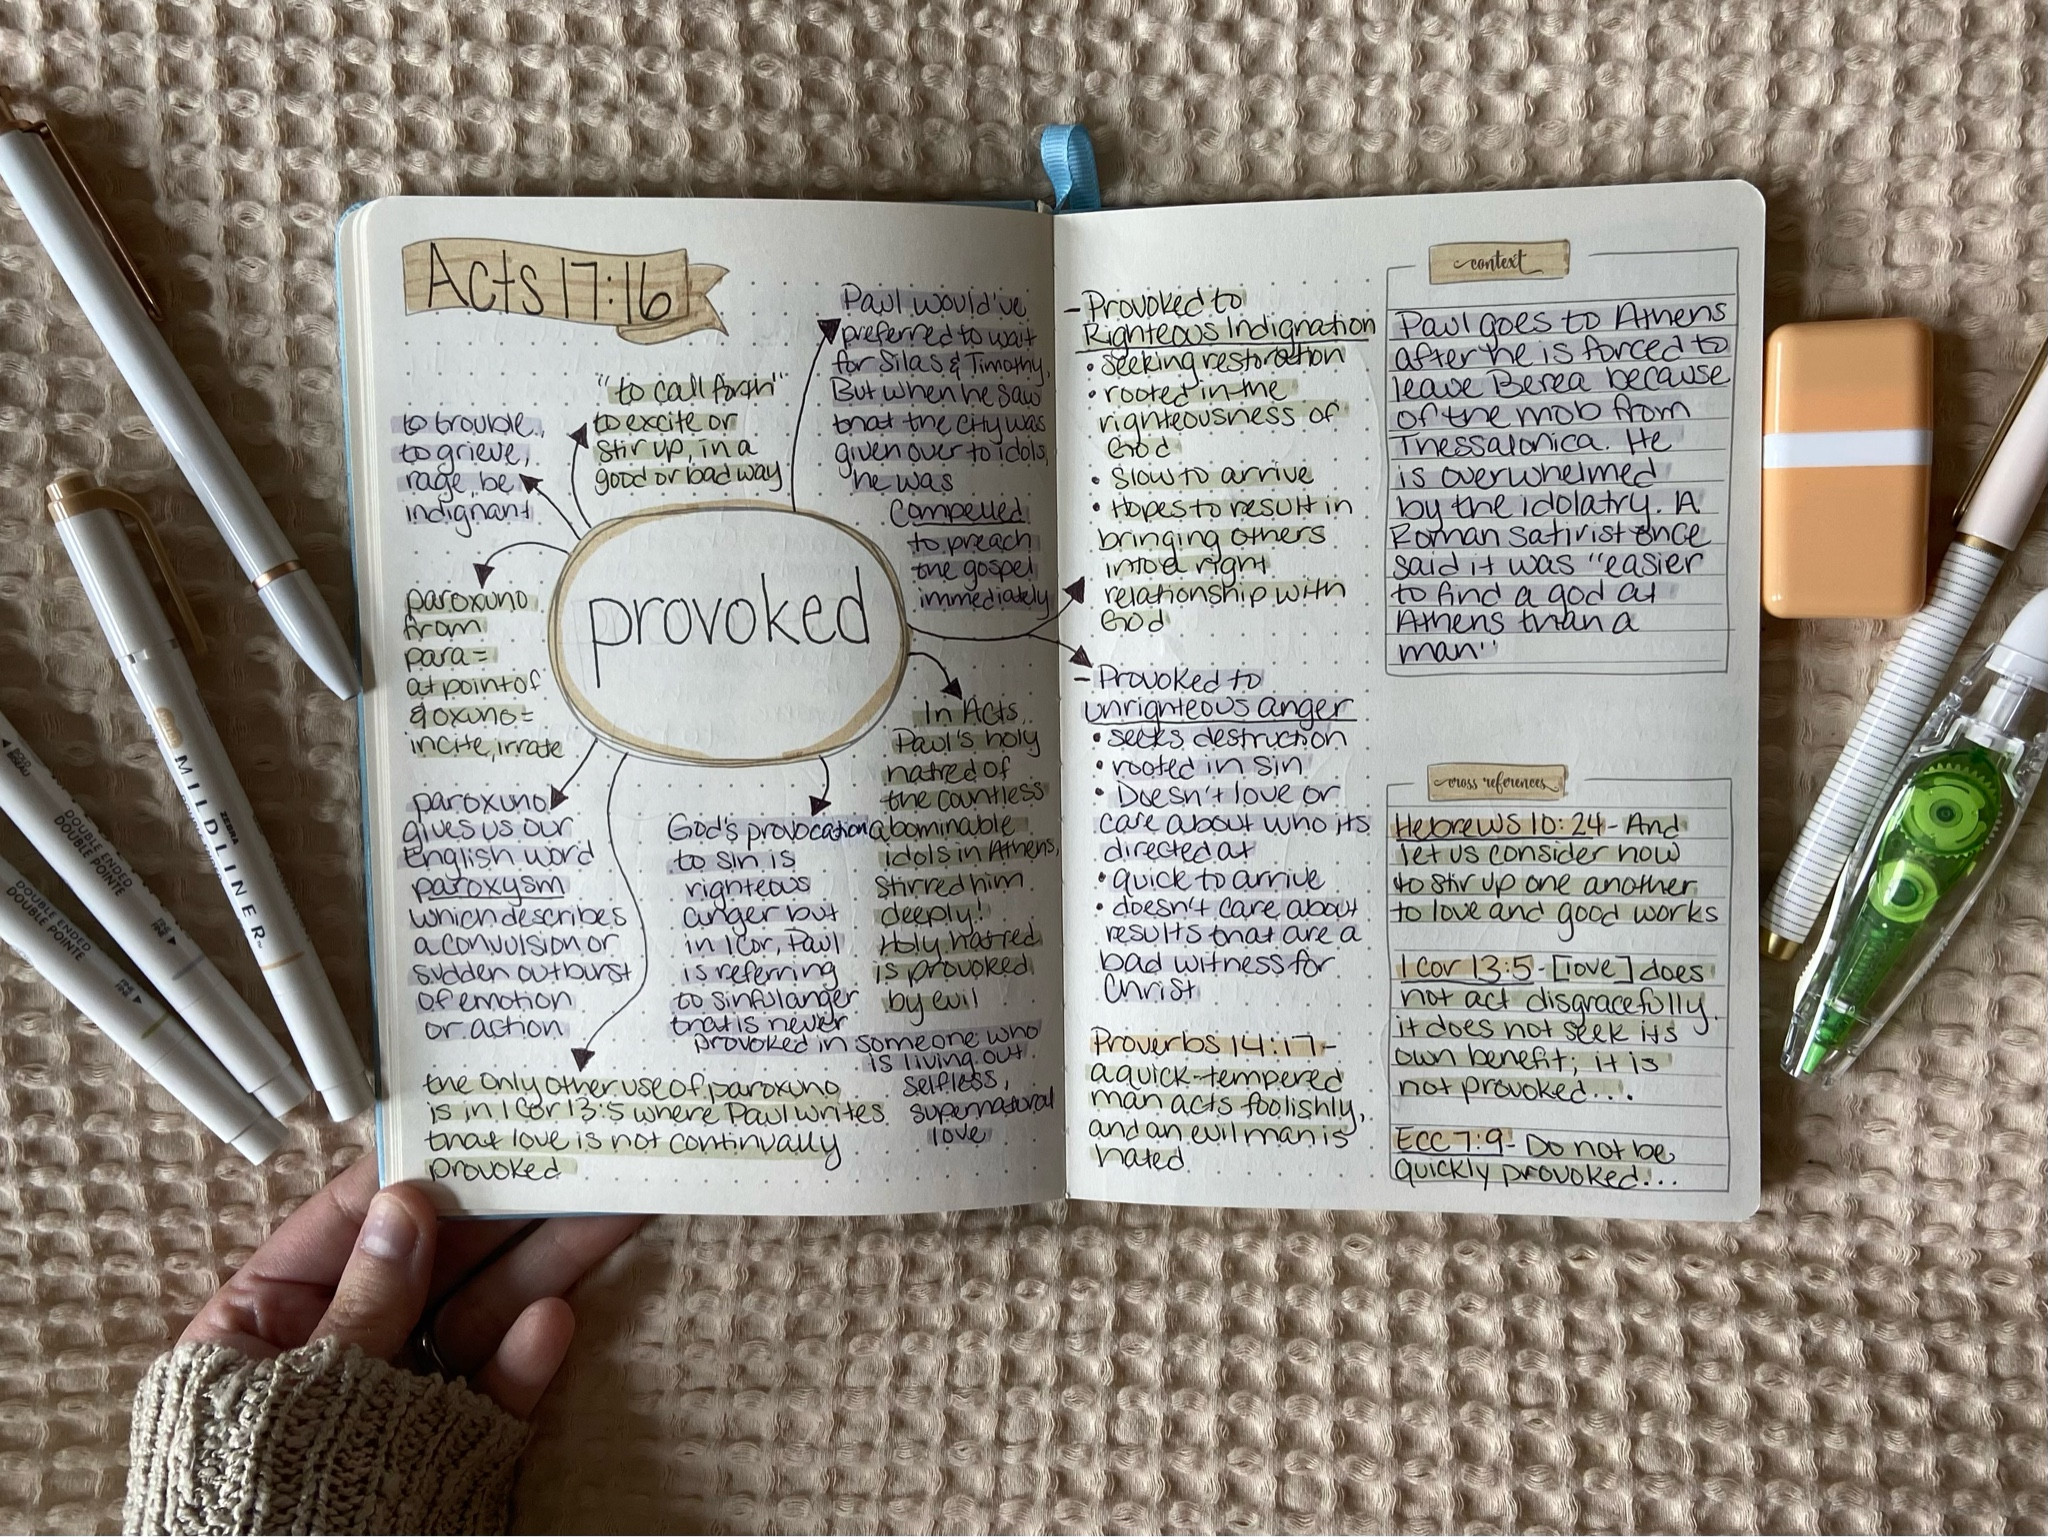 Acts 17:16
to trouble,
to grieve,
rage, be
indignant
"to call forth"
to excite or
stir up, in a
good or bad way
Paul would've
preferred to wait
for Silas & Timothy,
But when he saw
that the city was
given over to idols,
he was
compelled
to preach
the gospel
immediately
provoked
paroxuno
from
para=
at point of
& oxuno=
incite, irrate
paroxuno
gives us our
English word
paroxysm
which describes
a convulsion or
sudden outburst
of emotion
or action
the only other use of paroxuno
is in 1 Cor 13:5 where Paul writes
that love is not continually
provoked
God's provocation
to sin is
righteous
anger but
in 1 Cor, Paul
is referring
to sinful anger
that is never
provoked in someone who
is living out
selfless,
supernatural
love
In Acts,
Paul's holy
hatred of
the countless
abominable
idols in Athens,
stirred him
deeply!
Holy Hatred
is provoked
by evil
- Provoked to
Righteous Indignation
• seeking restoration
• rooted in the
righteousness of
God
• slow to arrive
• Hopes to result in
bringing others
into a right
relationship with
God
- Provoked to
unrighteous anger
• seeks destruction
• rooted in sin
• Doesn't love or
care about who its
directed at
• quick to arrive
• doesn't care about
results that are a
bad witness for
Christ
Proverbs 14:17-
a quick-tempered
man acts foolishly,
and an evil man is
hated
context
Paul goes to Athens
after he is forced to
leave Berea because
of the mob from
Thessalonica. He
is overwhelmed
by the idolatry. A
Roman satirist once
said it was "easier
to find a god at
Athens than a
man"
cross references
Hebrews 10:24- And
let us consider how
to stir up one another
to love and good works
1 Cor 13:5-[love] does
not act disgracefully,
it does not seek its
own benefit; it is
not provoked...
Ecc 7:9- Do not be
quickly provoked...
ZEBRA
MILDLINER
DOUBLE ENDED
DOUBLE POINTE
FINE
DOUBLE ENDED
DOUBLE POINTE
FINE